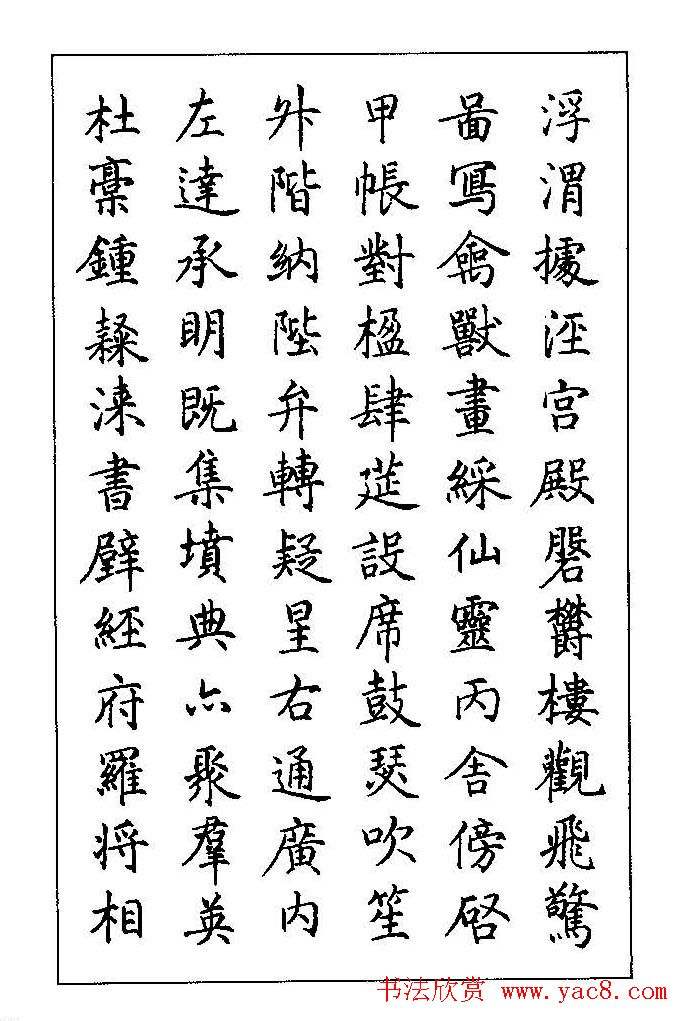 浮渭據涇宫殿磐鬱樓觀飛驚
啚寫禽獸畫綵仙靈丙舍傍啓
甲帳對楹肆筵設席鼓瑟吹笙
升階納陛弁轉疑星右通廣内
左達承明既集墳典亦聚羣英
杜稾鍾隸漆書壁經府羅将相
书法欣赏 www.yac8.com